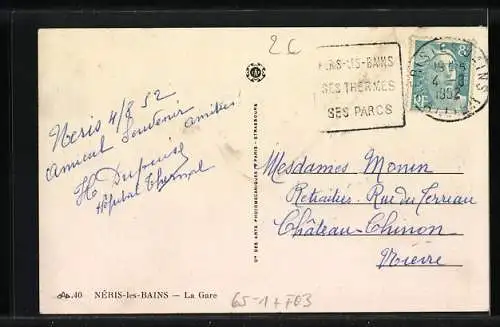 2€
NÉRIS-LES-BAINS
SES THERMES
SES PARCS
4-8
1952
Neris 4/8 52
Amical Souvenir
Amitiés
H Dupuis
Hôpital Thermal
Cie DES ARTS PHOTOMÉCANIQUES PARIS - STRASBOURG
Mesdames Monin
Retraitées - Rue du Terreau
Château-Chinon
Nièvre
40 NÉRIS-les-BAINS — La Gare
65-1+F03